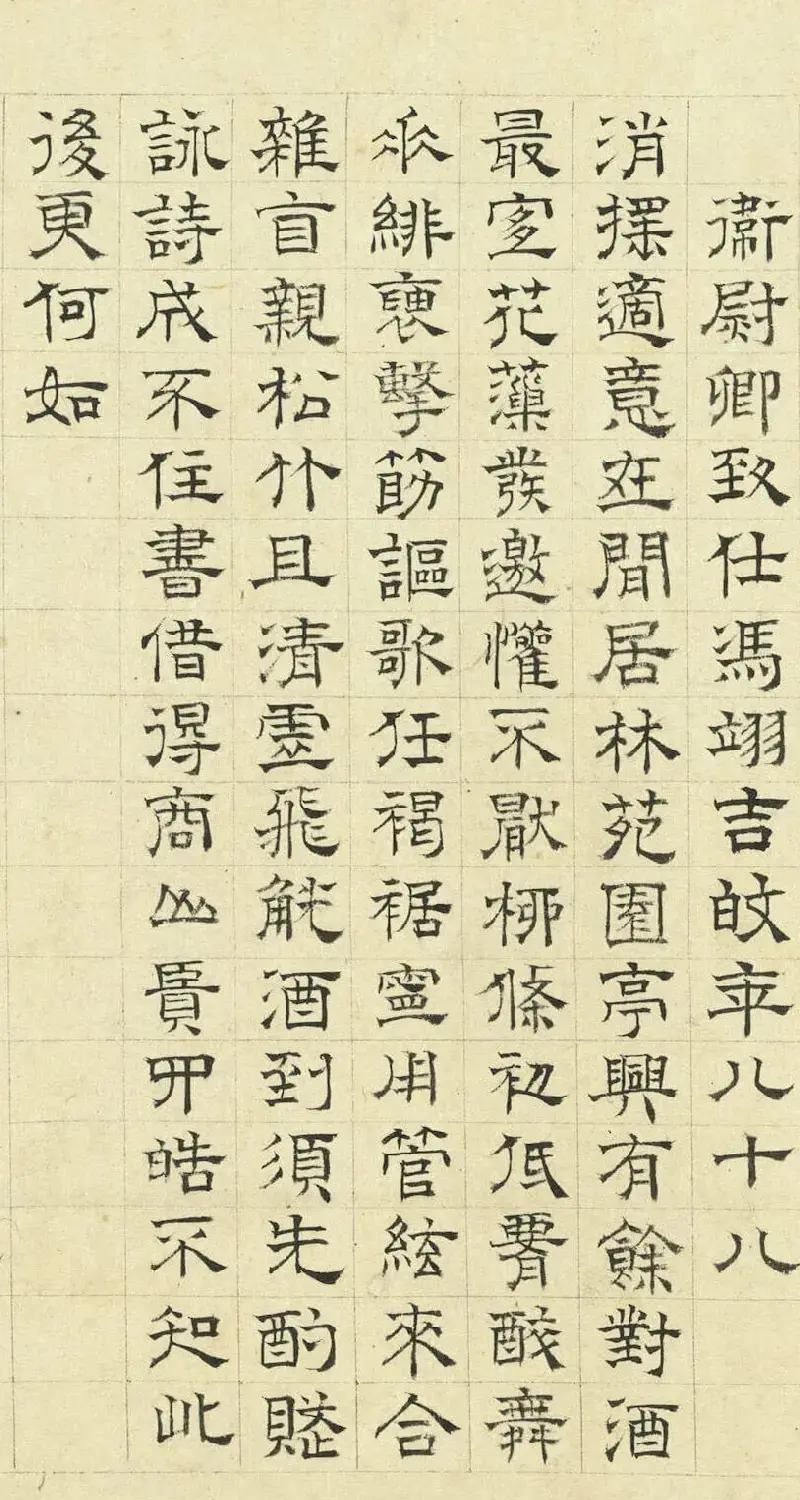 衛尉卿致仕馮翊吉皎年八十八
消適意在閒居林苑園亭興有餘對酒
最宜花藻發邀懽不厭柳條初低腰醉舞
垂緋褎擊筯謳歌任褐裾寧用管絃來合
雜自親松竹且清虛飛觥酒到須先酌賦
詠詩成不住書借得商山賢四皓不知此
後更何如